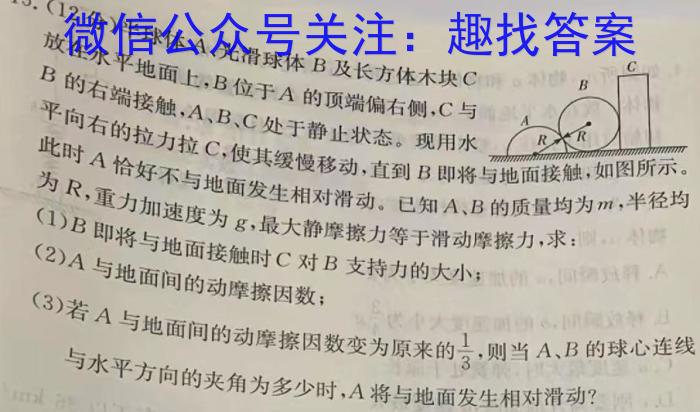 微信公众号关注：趣找答案
球体A、光滑球体B及长方体木块C
放在水平地面上,B位于A的顶端偏右侧,C与
B的右端接触,A、B、C处于静止状态。现用水
平向右的拉力拉C,使其缓慢移动,直到B即将与地面接触,如图所示。
此时A恰好不与地面发生相对滑动。已知A、B的质量均为m,半径均
为R,重力加速度为g,最大静摩擦力等于滑动摩擦力,求:
(1)B即将与地面接触时C对B支持力的大小;
(2)A与地面间的动摩擦因数;
(3)若A与地面间的动摩擦因数变为原来的1/3,则当A、B的球心连线
与水平方向的夹角为多少时,A将与地面发生相对滑动?
A
B
C
R
R